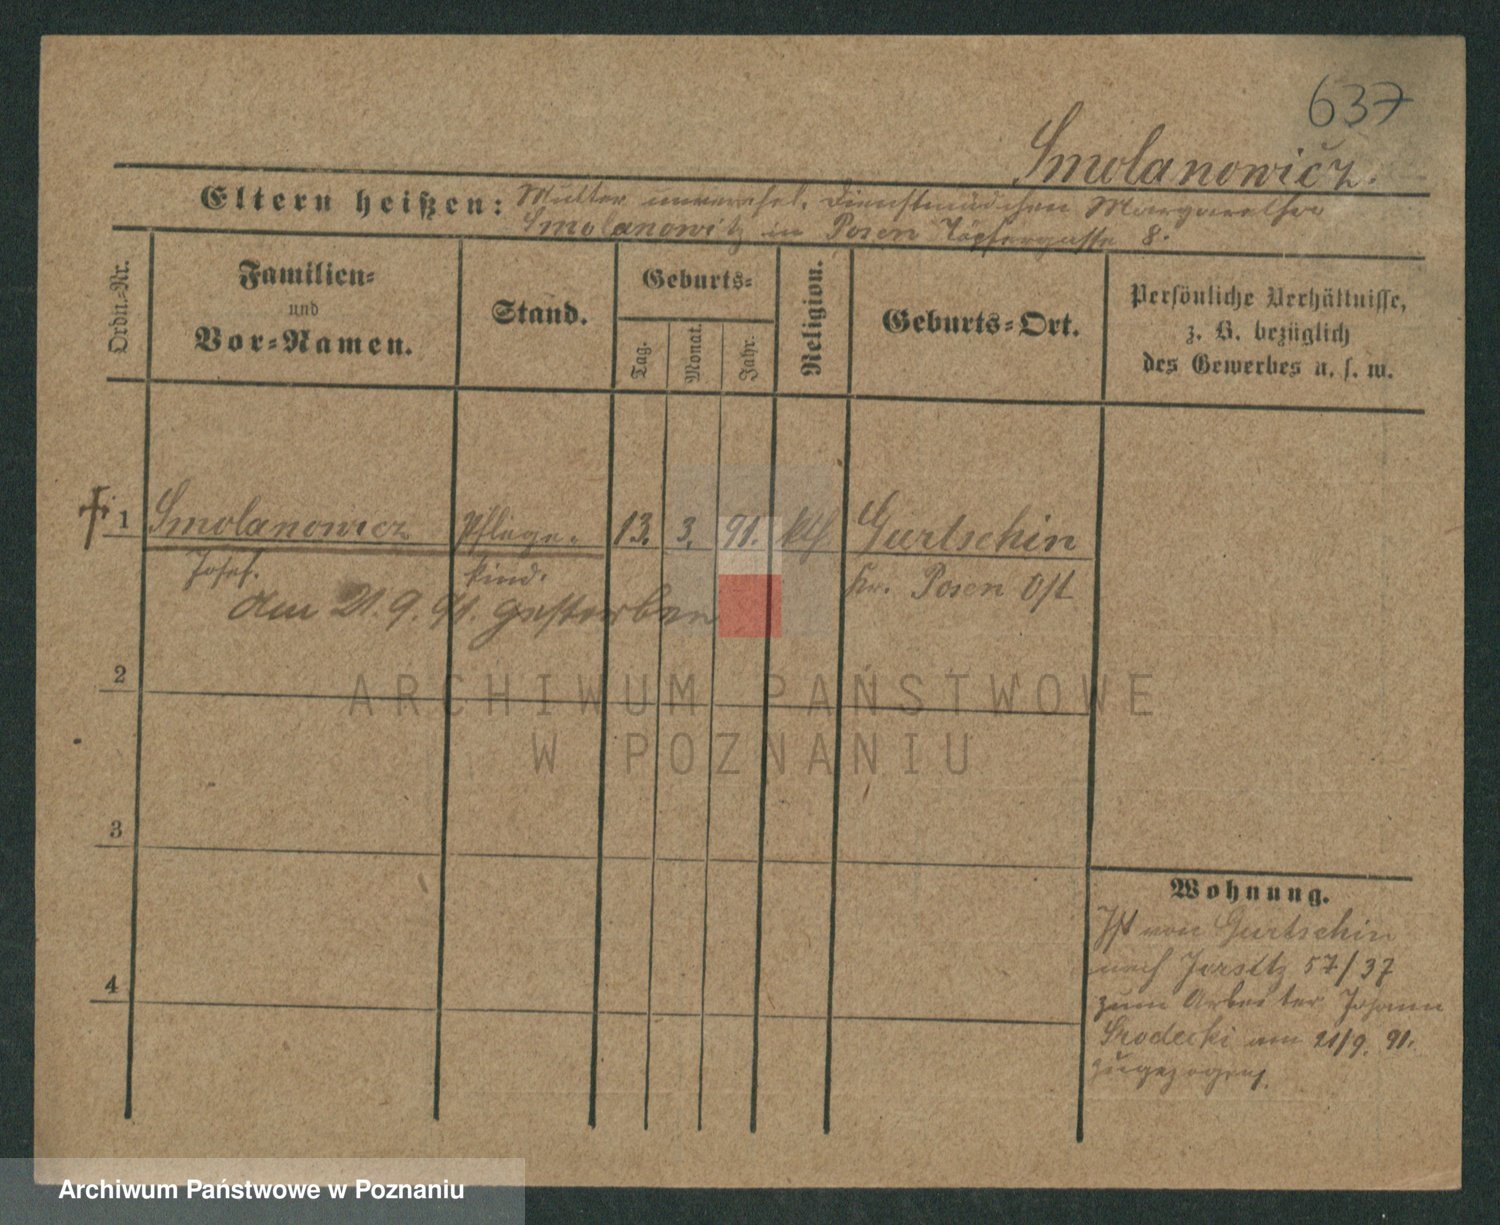 637
Smolanowicz.
Eltern heißen: Mutter unverehel. Dienstmädchen Margarethe
Smolanowitz in Posen Töpfergasse 8.
Ordn.-Nr.
Familien-
und
Vor-Namen.
Stand.
Geburts-
Tag.
Monat.
Jahr.
Religion.
Geburts-Ort.
Persönliche Verhältnisse,
z. B. bezüglich
des Gewerbes u. s. w.
1 Smolanowicz Pflege- 13. 3. 91. kth. Gurtschin
Josef. kind. Kr. Posen Ost
am 21.9.91. gestorben
2
3
4
Wohnung.
Ist von Gurtschin
nach Jersitz 57/37
zum Arbeiter Johann
Srodecki am 21/9. 91.
zugezogen.
ARCHIWUM PAŃSTWOWE
W POZNANIU
Archiwum Państwowe w Poznaniu